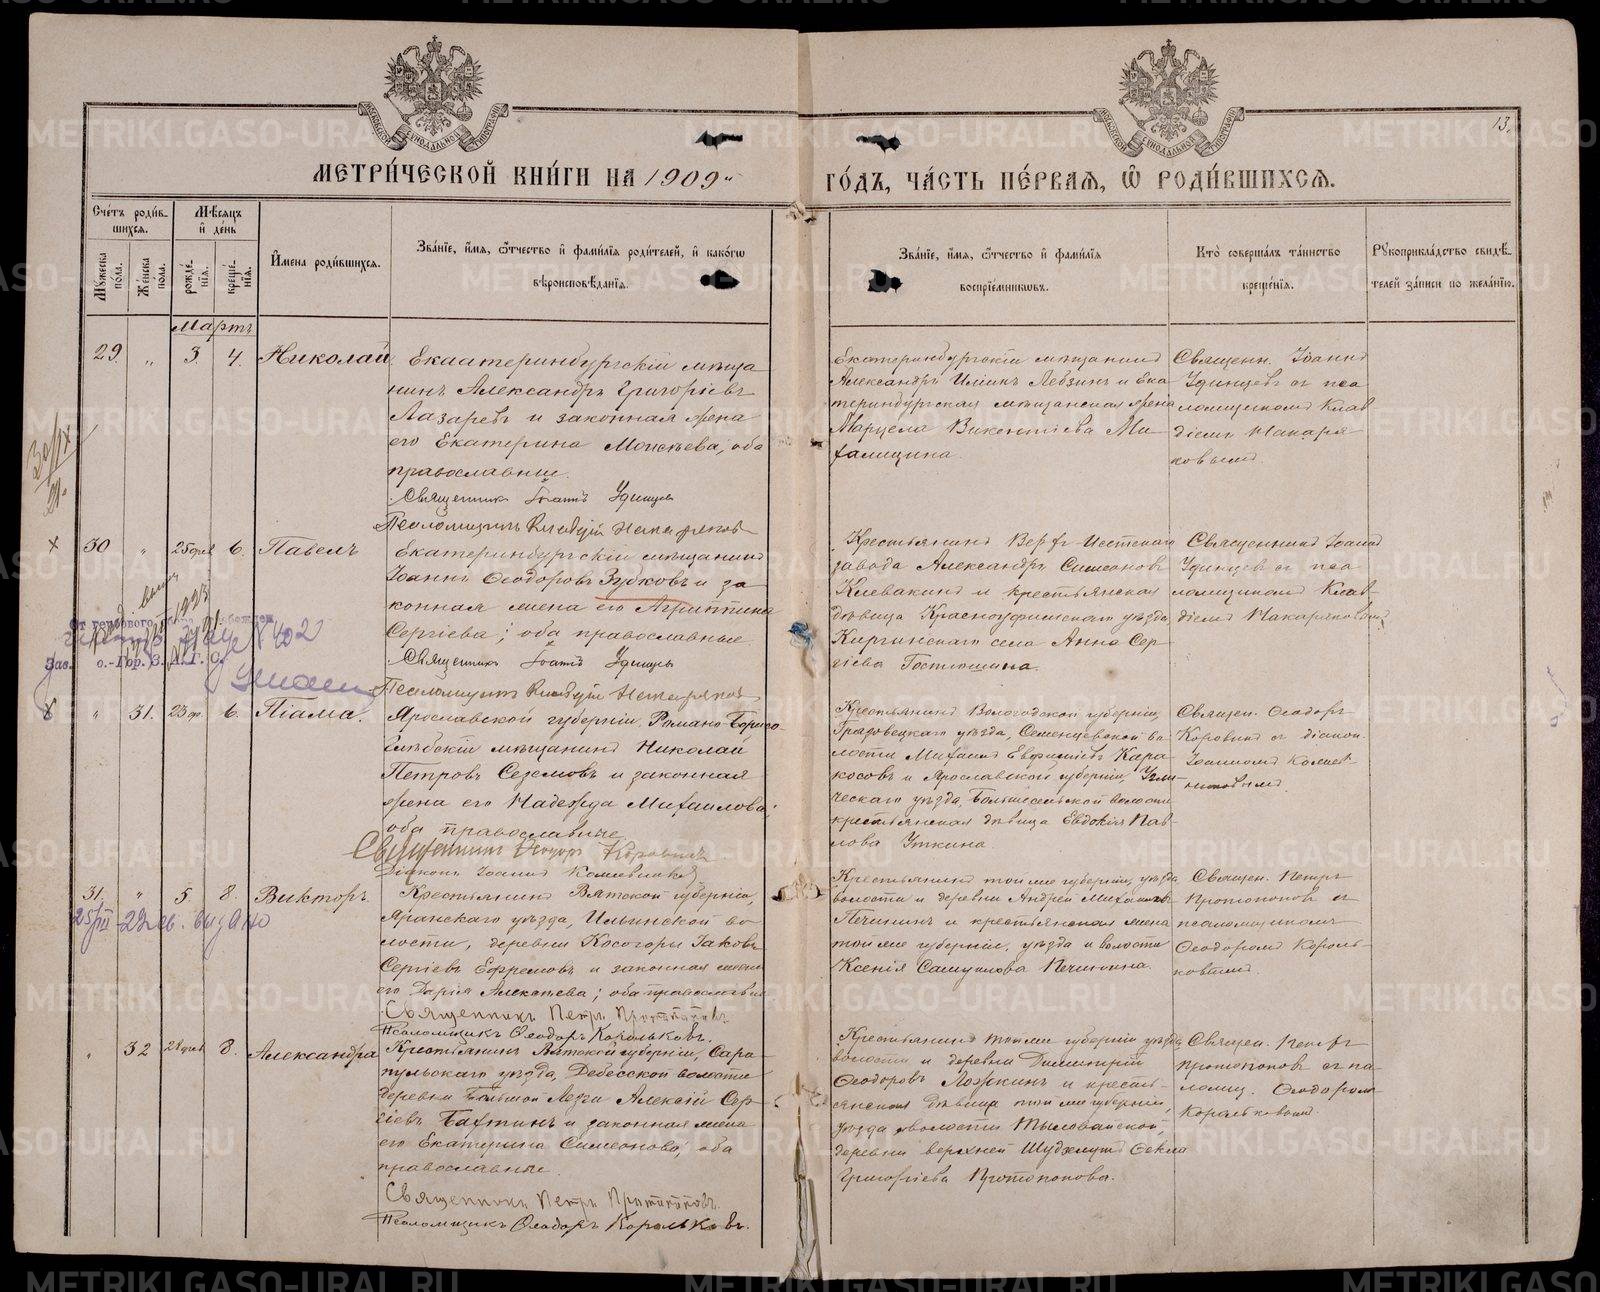 13.
МЕТРИ́ЧЕСКОЙ КНИ́ГИ НА 1909 ГО́ДЪ, ЧА́СТЬ ПЕ́РВАЯ, Ѡ҆ РОДИ́ВШИХСЯ.
Сче́тъ роди́в-
шихся.
Мѣ́сяцъ
и҆ де́нь
Му́жеска
по́ла.
Же́нска
по́ла.
рожде́-
нїя.
креще́-
нїя.
И҆мена роди́вшихся.
Зва́нїе, и҆́мя, ѻ҆́тчество и҆ фами́лїя роди́телей, и҆ како́гѡ
вѣроисповѣ́данїя.
Зва́нїе, и҆́мя, ѻ҆́тчество и҆ фами́лїя
воспрїе́мникѡвъ.
Кто̀ соверша́лъ та́инство
креще́нїя.
Рукоприкла́дство свидѣ́-
телей за́писи по жела́нїю.
Мартъ
29. „ 3. 4. Николай
Екатеринбургскій мѣща
нинъ Александръ Григоріевъ
Лазаревъ и законная жена
его Екатерина Моисѣева, оба
православные.
Священникъ Іоаннъ Удинцевъ
Псаломщикъ Клавдій Макаряковъ
Екатеринбургскій мѣщанинъ
Александръ Иліинъ Левзинъ и Ека
теринбургская мѣщанская жена
Марцела Викентіева Ми
галицина.
Священ. Іоаннъ
Удинцевъ съ пса
ломщикомъ Клав
діемъ Макаря
ковымъ.
30 „ 25 фев 6. Павелъ
Екатеринбургскій мѣщанинъ
Іоаннъ Ѳеодоровъ Зубковъ и за
конная жена его Агриппина
Сергіева; оба православные
Священникъ Іоаннъ Удинцевъ
Псаломщикъ Клавдій Макаряковъ
Крестьянинъ Верхъ-Исетскаго
завода Александръ Симеоновъ
Клевакинъ и крестьянская
дѣвица Красноуфимскаго уѣзда
Киргинскаго села Анна Сер
гіева Гостюшина.
Священникъ Іоаннъ
Удинцевъ съ пса
ломщикомъ Клав
діемъ Макаряковымъ
„ 31. 23 ф. 6. Піама.
Ярославской губерніи, Романо-Борисо
глѣбскій мѣщанинъ Николай
Петровъ Сеземовъ и законная
жена его Надежда Михаилова;
оба православные
Священникъ Ѳеодоръ Коровинъ
Діаконъ Іоаннъ
Крестьянинъ Вологодской губерніи,
Грязовецкаго уѣзда, Семенцевской во
лости Михаилъ Евфиміевъ Кара
косовъ и Ярославской губерніи, Угли-
ческаго уѣзда, Большесельской волости
крестьянская дѣвица Евдокія Пав-
лова Уткина
Священ. Ѳеодоръ
Коровинъ съ діакон.
Іоанномъ
31. „ 5. 8. Викторъ.
Крестьянинъ Вятской губерніи,
Яранскаго уѣзда, Ильинской во
лости, деревни Косогоры Іаковъ
Сергіевъ Ефремовъ и законная жена
его Дарія Алексѣева; оба православные
Священникъ Петръ Протопоповъ
Псаломщикъ Ѳеодоръ Корольковъ.
Крестьянинъ той же губерніи, уѣзда
волости и деревни Андрей Михаиловъ
Печинина и крестьянская жена
той же губерніи, уѣзда и волости
Ксенія Самуилова Печинина.
Священ. Петръ
Протопоповъ съ
псаломщикомъ
Ѳеодоромъ Король-
ковымъ.
„ 32 28 фев 8. Александра
Крестьянинъ Вятской губерніи, Сара-
пульскаго уѣзда, Дебесской волости
деревни Большой Лезги Алексій Сер-
гіевъ Бахтинъ и законная жена
его Екатерина Симеонова, оба
православные.
Священникъ Петръ Протопоповъ.
Псаломщикъ Ѳеодоръ Корольковъ.
Крестьянинъ той же губерніи уѣзда,
волости и деревни Димитрій
Ѳеодоровъ Ложкинъ и кресть-
янская дѣвица той же губерніи,
уѣзда волости Тыловайской,
деревни верхней Ѳекла
Григоріева Протопопова.
Священ. Петръ
Протопоповъ съ пса-
ломщ. Ѳеодоромъ
Корольковымъ.
METRIKI.GASO-URAL.RU